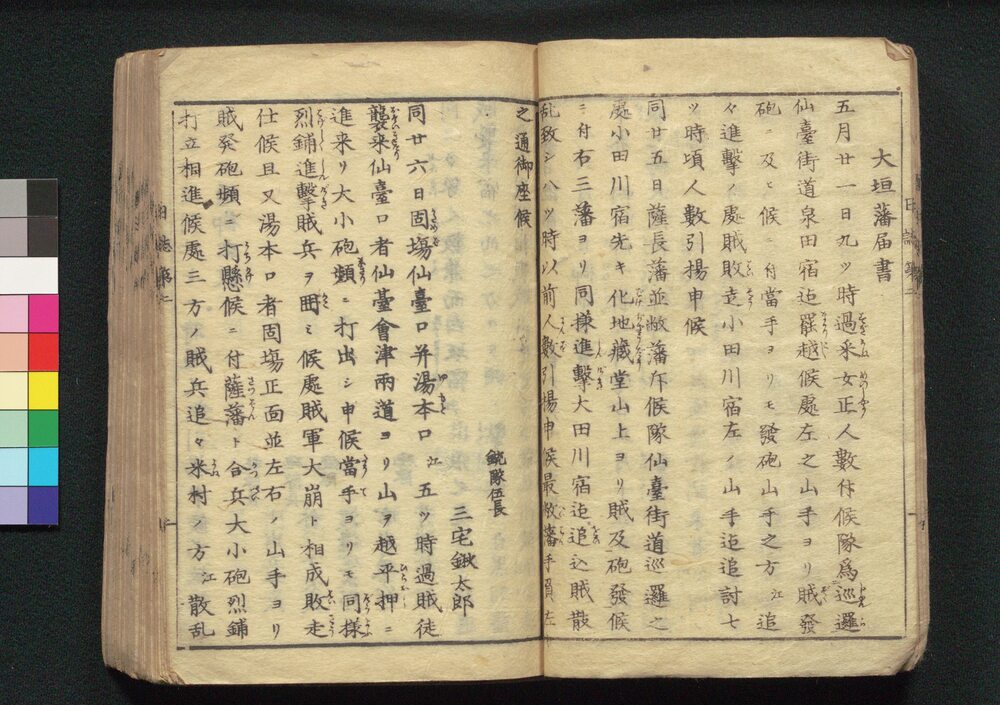 大垣藩届書
五月廿一日九ツ時過采女正人數休候隊爲巡邏
仙臺街道泉田宿迠羅越候處左之山手ヨリ賊發
砲ニ及ヒ候ニ付當手ヨリモ發砲山手之方江追
々進擊ノ處賊敗走小田川宿左ノ山手迠追討七
ツ時頃人數引揚申候
同廿五日薩長藩並敝藩斥候隊仙臺街道巡邏之
處小田川宿先キ化地藏堂山上ヨリ賊及砲發候
ニ付右三藩ヨリ同樣進擊大田川宿迠追込賊散
乱致シ八ツ時以前人數引揚申候最敝藩手負左
之通御座候
銃隊伍長
三宅鍬太郎
同廿六日固塲仙臺口并湯本口江五ツ時過賊徒
襲来仙臺口者仙䑓會津兩道ヨリ山ヲ越平押ニ
進来リ大小砲頻ニ打出シ申候當手ヨリモ同樣
烈鋪進擊賊兵ヲ囲ミ候處賊軍大崩ト相成敗走
仕候且又湯本口者固塲正面並左右ノ山手ヨリ
賊發砲頻ニ打懸候ニ付薩藩ト合兵大小砲烈鋪
打立相進候處三方ノ賊兵追々米村ノ方江散乱
日誌第二